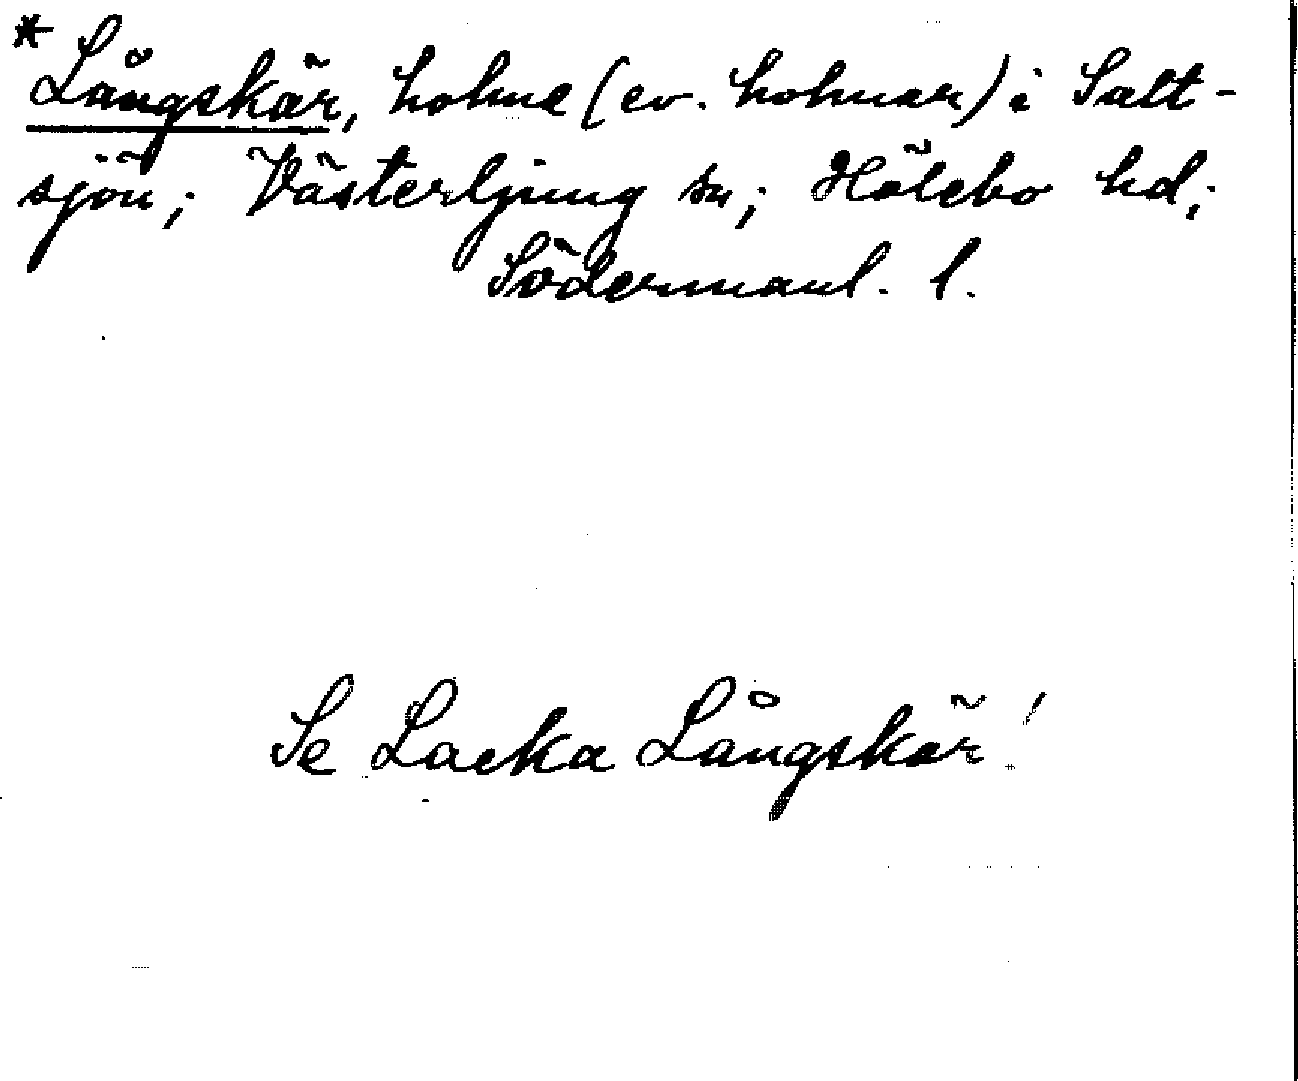 * Långskär, holme (ev. holmar) i Salt-
sjön; Västerljung sn; Hölebo hd;
Södermanl. l.
Se Lacka Långskär!